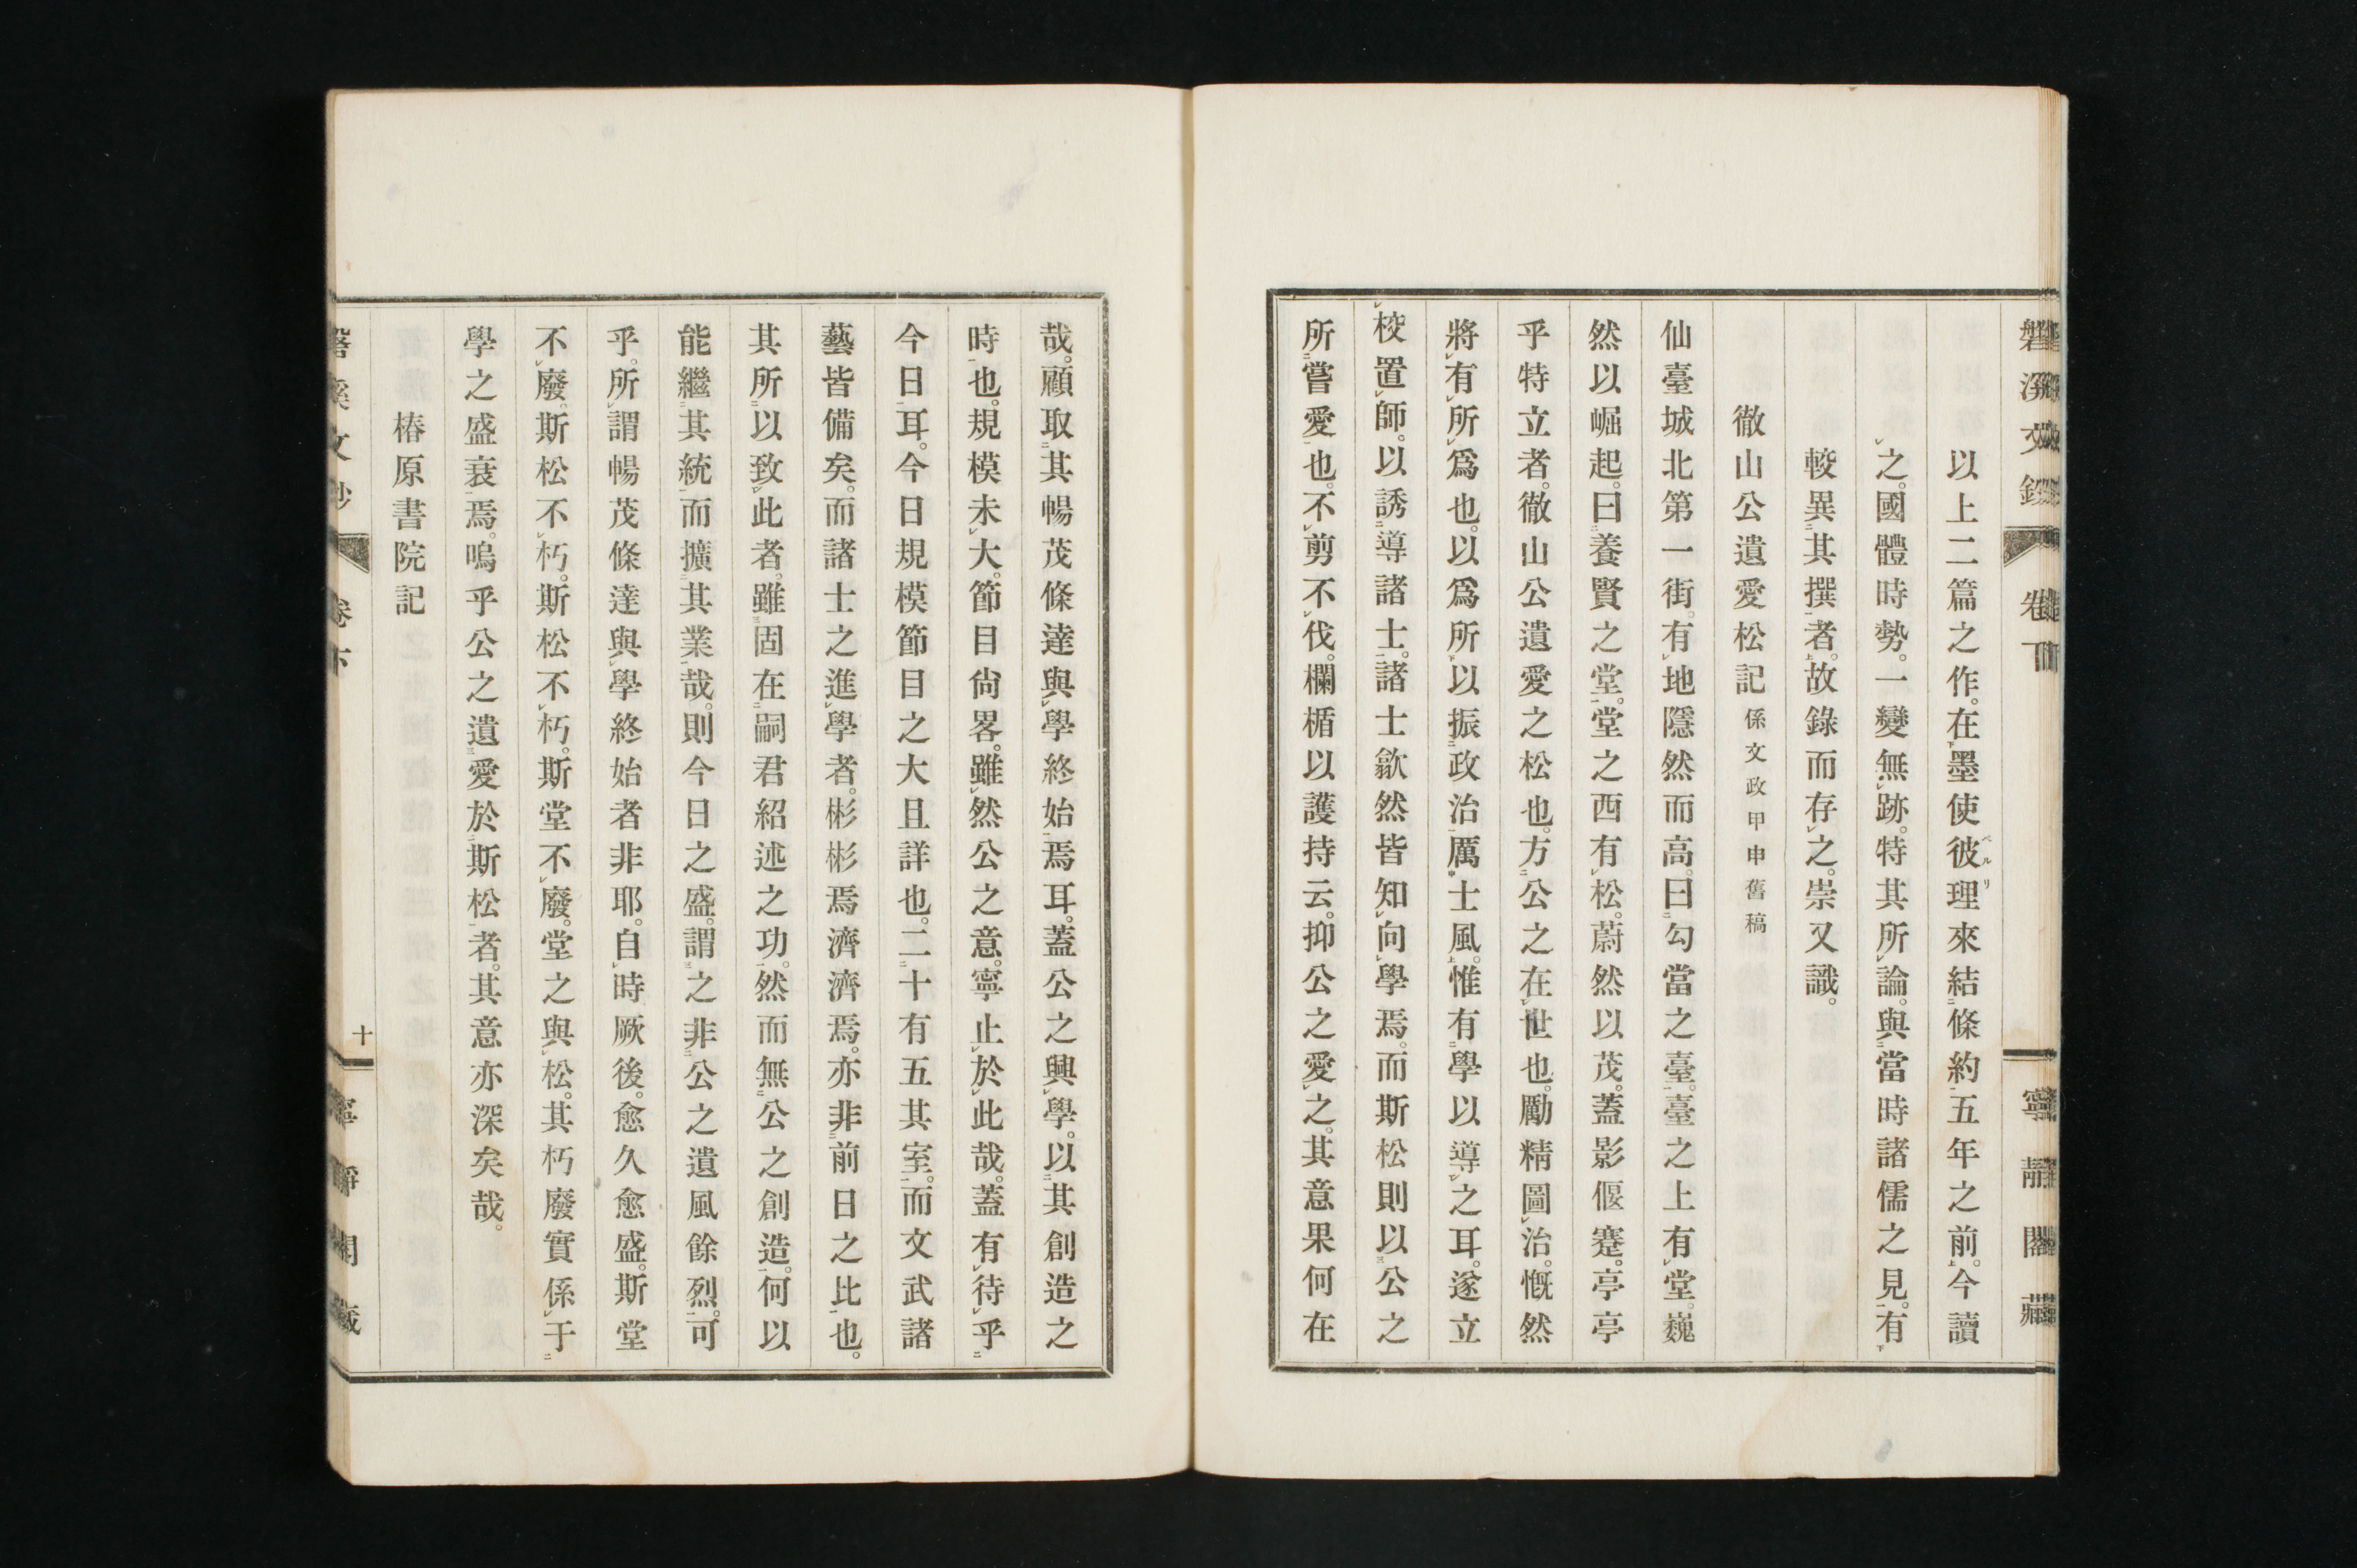 磐溪文鈔　卷下　寧靜閣藏
以上二篇之作。在墨使彼理來結條約五年之前。今讀
ペルリ
之。國體時勢。一變無跡。特其所論。與當時諸儒之見。有
較異其撰者。故錄而存之。崇又識。
徹山公遺愛松記 係文政甲申舊稿
仙臺城北第一街。有地隱然而高。曰勾當之臺。臺之上有堂。巍
然以崛起。曰養賢之堂。堂之西有松。蔚然以茂。蓋影偃蹇。亭亭
乎特立者。徹山公遺愛之松也。方公之在世也。勵精圖治。慨然
將有所爲也。以爲所以振政治厲士風。惟有學以導之耳。遂立
校置師。以誘導諸士。諸士歙然皆知向學焉。而斯松則以公之
所嘗愛也。不剪不伐。欄楯以護持云。抑公之愛之。其意果何在
哉。顧取其暢茂條達與學終始焉耳。蓋公之興學。以其創造之
時也。規模未大。節目尙畧。雖然公之意。寧止於此哉。蓋有待乎
今日耳。今日規模節目之大且詳也。二十有五其室。而文武諸
藝皆備矣。而諸士之進學者。彬彬焉濟濟焉。亦非前日之比也。
其所以致此者。雖固在嗣君紹述之功。然而無公之創造。何以
能繼其統而擴其業哉。則今日之盛。謂之非公之遺風餘烈。可
乎。所謂暢茂條達與學終始者非耶。自時厥後。愈久愈盛。斯堂
不廢。斯松不朽。斯松不朽。斯堂不廢。堂之與松。其朽廢實係于
學之盛衰焉。嗚乎公之遺愛於斯松者。其意亦深矣哉。
椿原書院記
磐溪文鈔　卷下　十　寧靜閣藏